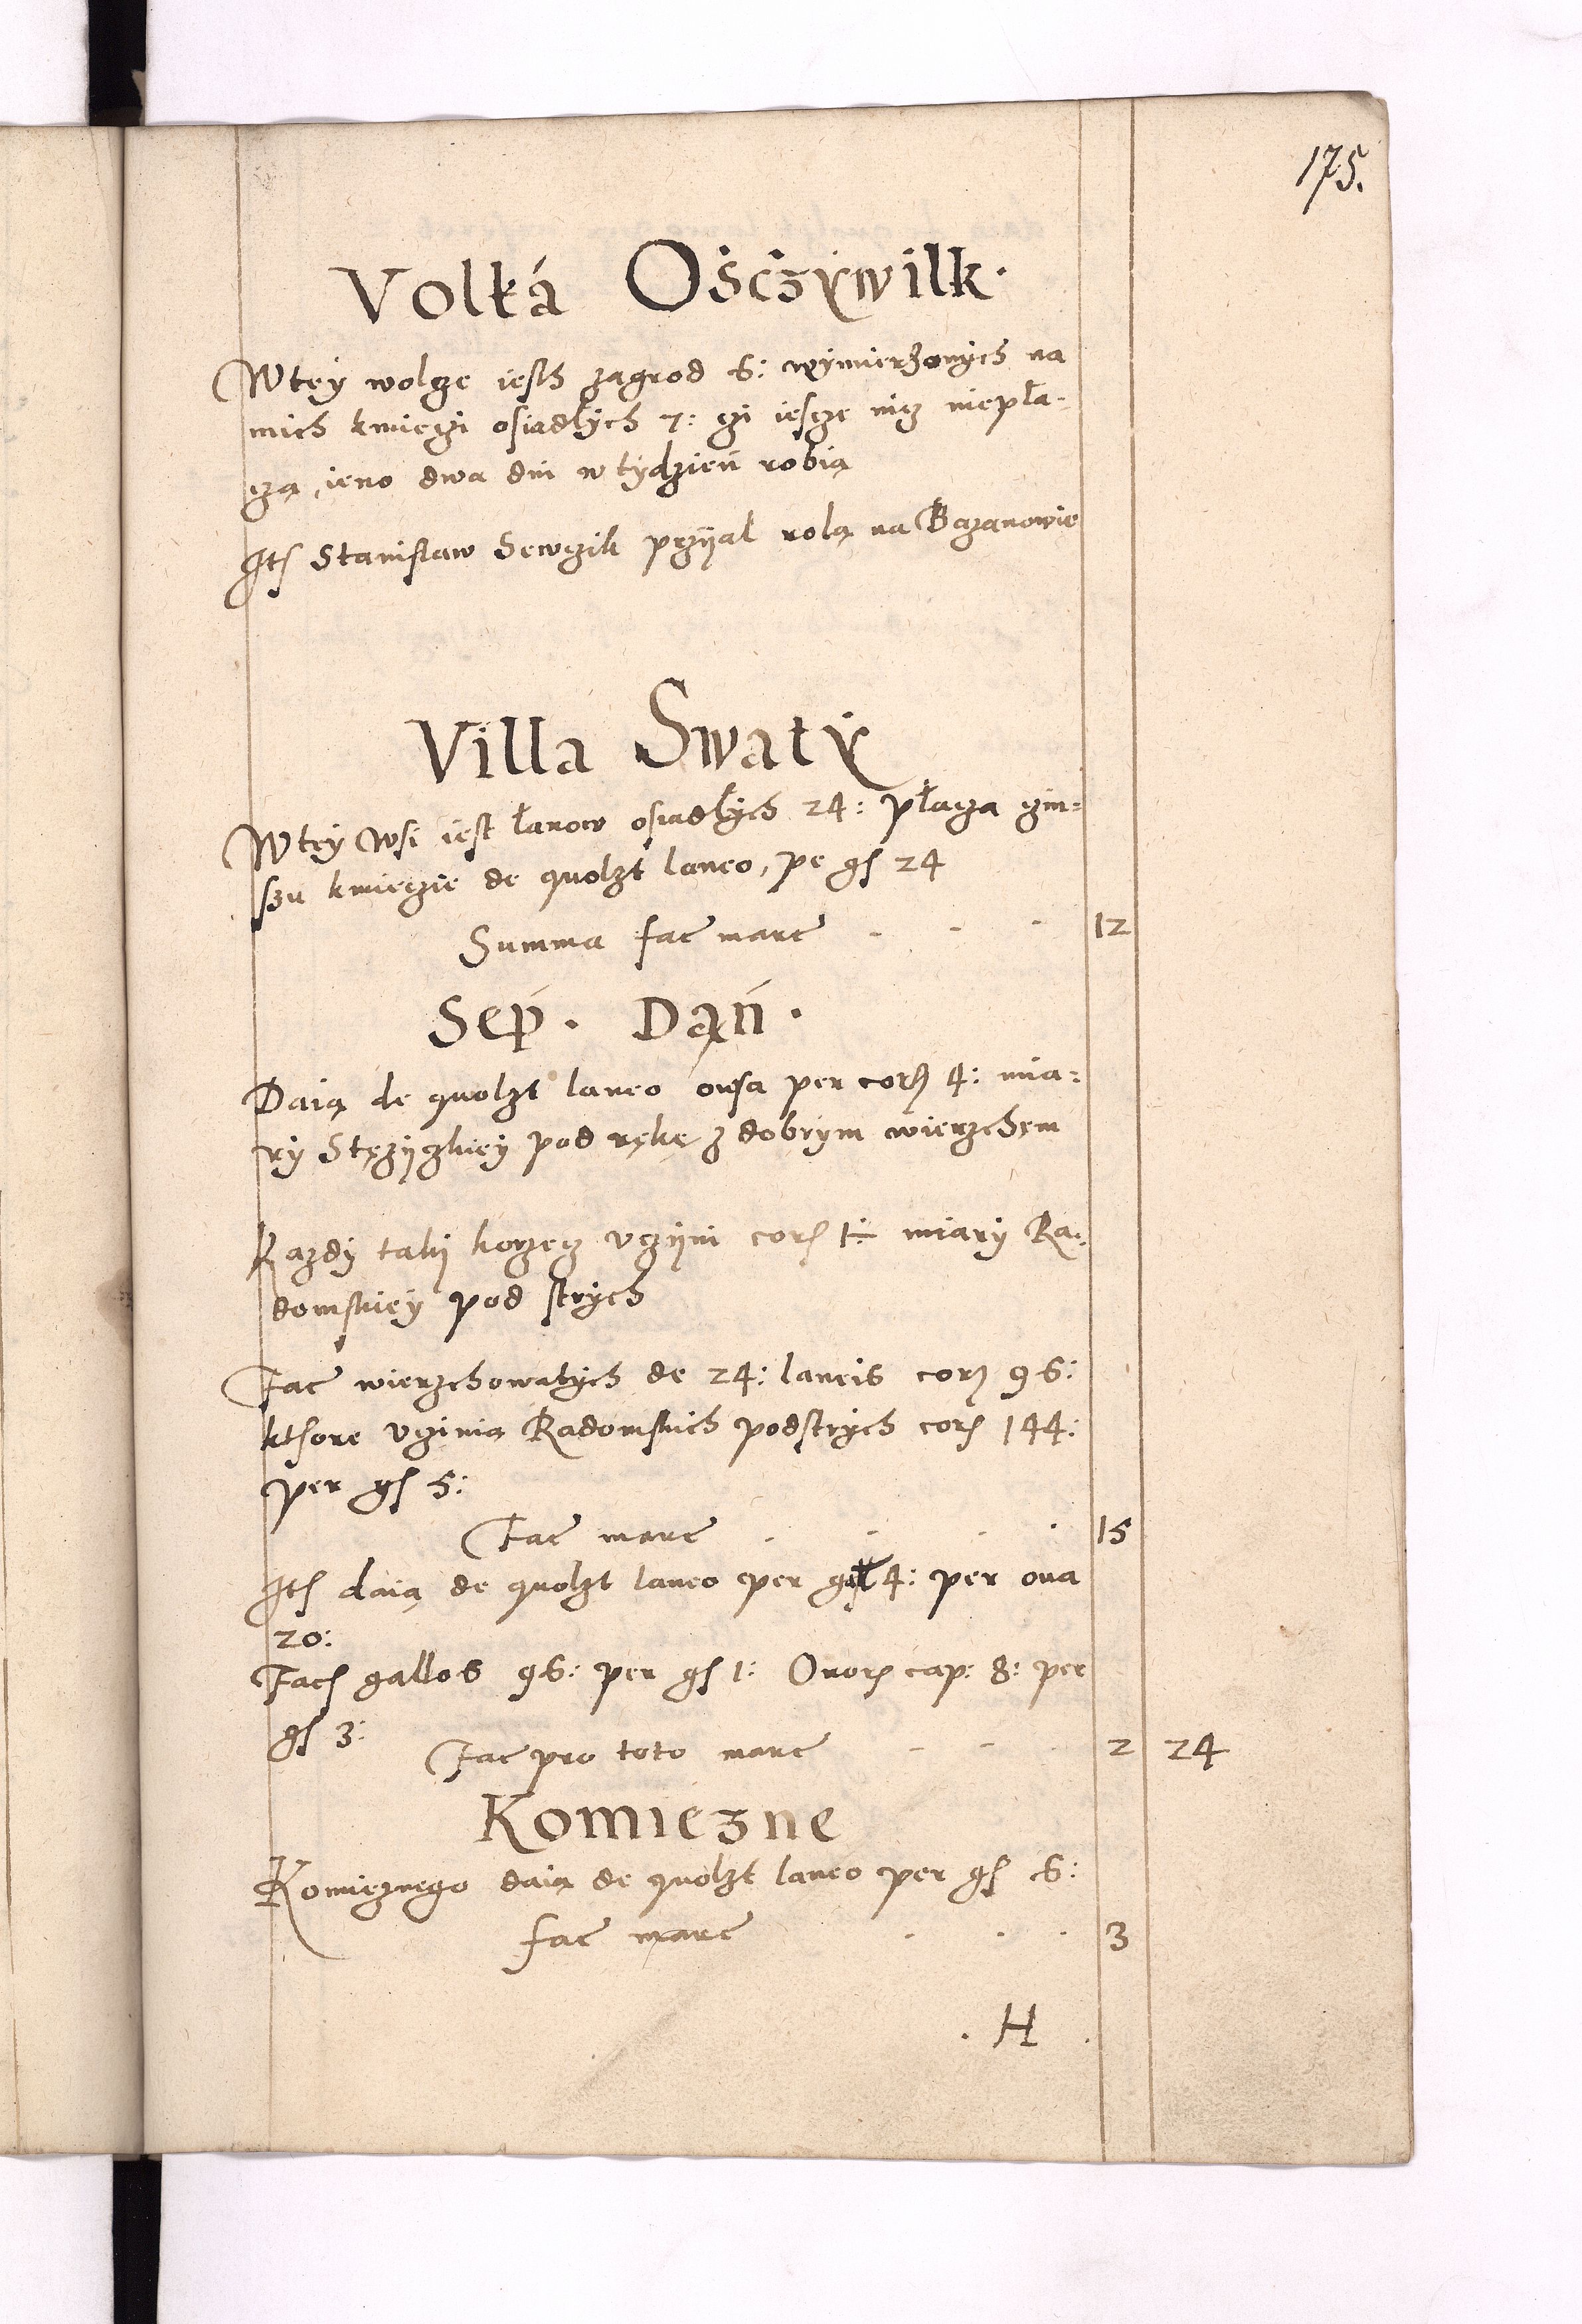 175.
Volká Ośćzywilk.
W tey wolcze iesth zagrod 6: wymierzonych na
nnich kmieczi osiadłych 7: czi iescze nicz niepła-
czą, ieno dwa dni w tydzień robią
Its Stanisław Sewczik przyial rolą na Bazanowie
Villa Swaty
W tey Wsi iest łanow osiadłych 24: płacza czin=
szu kmieczie de quolzt laneo, pe gs 24
Summa fac marc 12
Sep. Dań.
Daią de quolzt laneo owsa per corz 4: mia=
ry Stężyczkiey pod rękę z dobrym wierzchem
Kazdy takj korzecz vczyni corz 1÷ miary Ra=
domskiey pod strych
Fac wierzchowatych de 24: laneis corz 96:
kthore vczinią Radomskich podstrych corz 144:
per gs 5:
Fac marc 15
Its daią de quolzt laneo per gal 4: per oua
20:
Facs gallos 96: per gs 1: Ouorz cap: 8: per
gs 3:
Fac pro toto marc 2 24
Komieczne
Komiecznego daią de quolzt laneo per gs 6:
fac marc 3
. H .